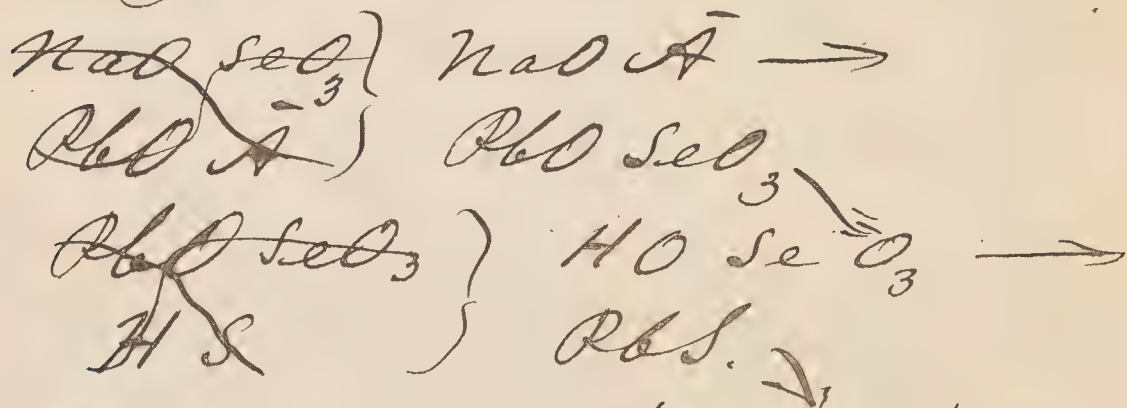 NaO SeO₃ } NaO Ā →
PbO Ā } PbO SeO₃ ↘
PbO SeO₃ } HO SeO₃ →
H S } PbS. ↘